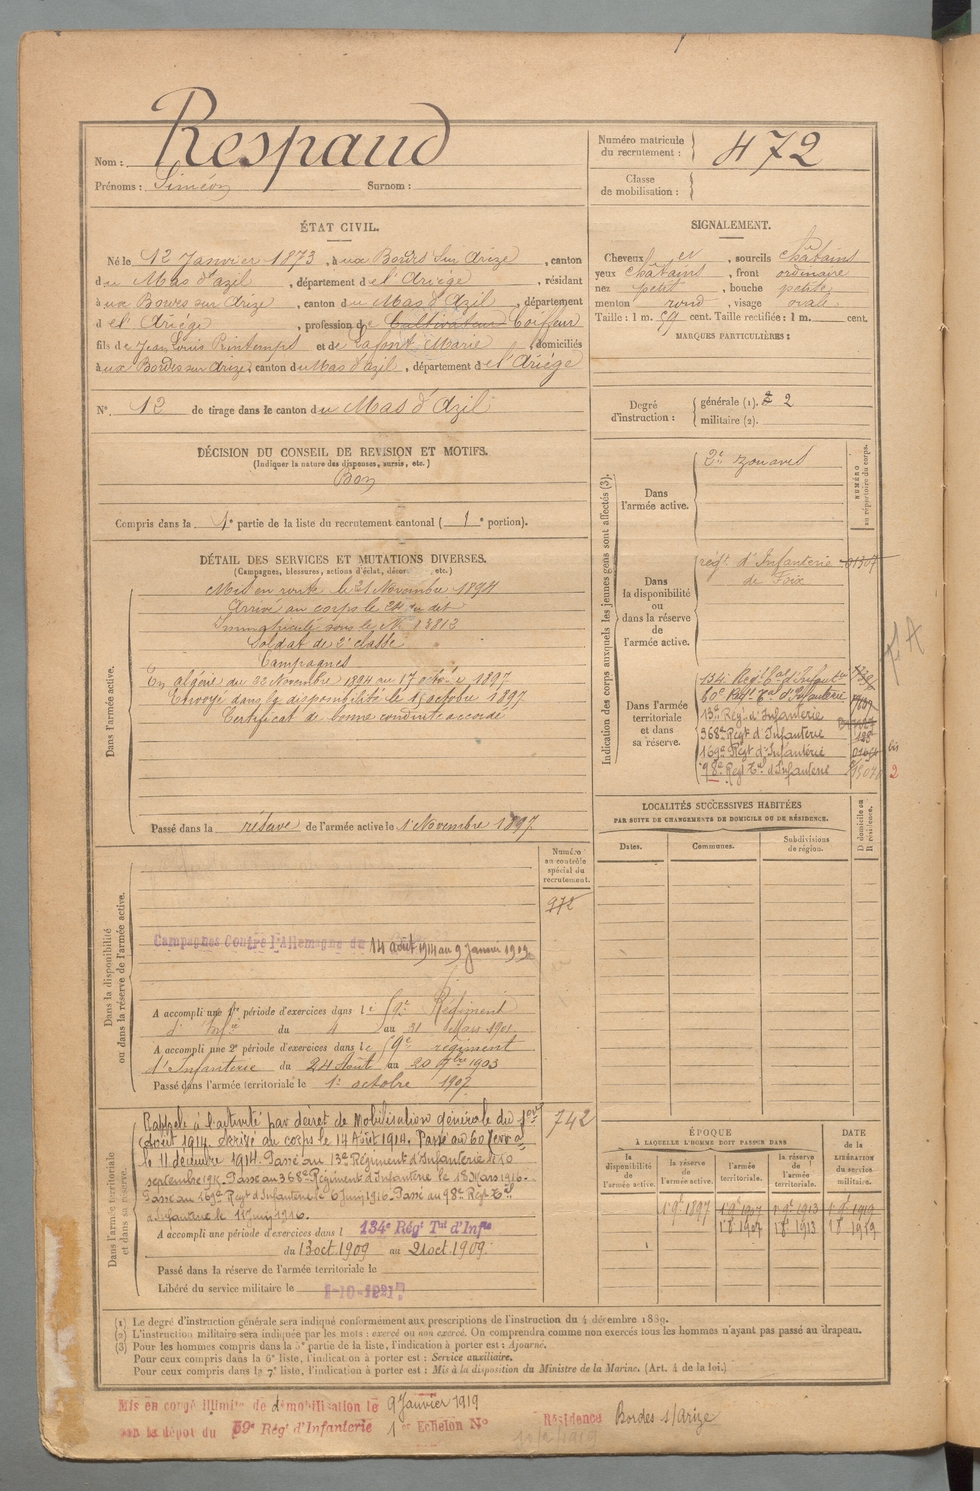 Nom : Respaud
Prénoms : Siméon Surnom :
Numéro matricule du recrutement : 472
Classe de mobilisation :
ÉTAT CIVIL.
Né le 12 Janvier 1873, à ux Bordes sur Arize, canton
du Mas d'azil, département de l'Ariège, résidant
à ux Bordes sur Arize, canton du Mas d'Azil, département
d el' Ariège, profession de Cultivateur Coiffeur
fils de Jean Louis Printemps et de Lafont Marie, domiciliés
à ux Bordes sur Arize, canton du Mas d'azil, département de l'Ariège
N° 12 de tirage dans le canton du Mas d'Azil
SIGNALEMENT.
Cheveux et, sourcils châtains
yeux châtains, front ordinaire
nez petit, bouche petite
menton rond, visage ovale
Taille : 1 m. cent. Taille rectifiée : 1 m. cent.
MARQUES PARTICULIÈRES :
Degré d'instruction : générale (1). 2
militaire (2).
DÉCISION DU CONSEIL DE REVISION ET MOTIFS.
(Indiquer la nature des dispenses, sursis, etc.)
Bon
Compris dans la 1e partie de la liste du recrutement cantonal ( 1e portion).
DÉTAIL DES SERVICES ET MUTATIONS DIVERSES.
(Campagnes, blessures, actions d'éclat, décor etc.)
Dans l'armée active.
Mis en route le 21 Novembre 1894
Arrivé au corps le 24 dit
Immatriculé sous le N° 13813
Soldat de 2e classe
Campagnes
En algérie du 22 Novembre 1894 au 17 octobre 1897
Envoyé dans la disponibilité le 17 octobre 1897
Certificat de bonne conduite accordé
Passé dans la réserve de l'armée active le 1 Novembre 1897
Indication des corps auxquels les jeunes gens sont affectés (3).
NUMÉRO au répertoire du corps.
Dans l'armée active.
2e zouaves
Dans la disponibilité ou dans la réserve de l'armée active.
régt d'Infanterie
de Foix
Dans l'armée territoriale et dans sa réserve.
134e Régt tal d'Infanterie
60e Régt tal d'Infanterie
13e Régt d'Infanterie
368e Régt d'Infanterie
169e Régt d'Infanterie
98e Régt tal d'Infanterie
bis
2
LOCALITÉS SUCCESSIVES HABITÉES
PAR SUITE DE CHANGEMENTS DE DOMICILE OU DE RÉSIDENCE.
Dates. Communes. Subdivisions de région. D domicile ou R résidence.
Dans la disponibilité ou dans la réserve de l'armée active.
Numéro au contrôle spécial du recrutement.
972
Campagnes Contre l'Allemagne du 14 août 1914 au 9 Janvier 1919
A accompli une 1re période d'exercices dans le 9e Régiment
d'Infie du 4 au 31 Mars 1901
A accompli une 2e période d'exercices dans le 9e régiment
d'Infanterie du 24 Août au 20 7bre 1903
Passé dans l'armée territoriale le 1er octobre 1907
Dans l'armée territoriale et dans sa réserve.
742
Rappelé à l'activité par décret de Mobilisation générale du 1er
Août 1914. Arrivé au corps le 14 Août 1914. Passé au 60e Terral
le 11 décembre 1914. Passé au 13e Régiment d'Infanterie le 10
septembre 1915. Passé au 368e Régiment d'Infanterie le 18 Mars 1916.
Passé au 169e Régt d'Infanterie le 6 Juin 1916. Passé au 98e Régt Tal
d'Infanterie le 11 Juin 1916.
A accompli une période d'exercices dans l 134e Régt Tal d'Infie
du 13 oct 1909 au 21 oct 1909.
Passé dans la réserve de l'armée territoriale le
Libéré du service militaire le
ÉPOQUE
À LAQUELLE L'HOMME DOIT PASSER DANS
DATE de la LIBÉRATION du service militaire.
la disponibilité de l'armée active. la réserve de l'armée active. l'armée territoriale. la réserve de l'armée territoriale.
1 9bre 1897 1 9bre 1907 1 9bre 1913 1 9bre 1919
1 8bre 1907 1 8bre 1913 1 8bre 1919
(1) Le degré d'instruction générale sera indiqué conformément aux prescriptions de l'instruction du 4 décembre 1889.
(2) L'instruction militaire sera indiquée par les mots : exercé ou non exercé. On comprendra comme non exercés tous les hommes n'ayant pas passé au drapeau.
(3) Pour les hommes compris dans la 5e partie de la liste, l'indication à porter est : Ajourné.
Pour ceux compris dans la 6e liste, l'indication à porter est : Service auxiliaire.
Pour ceux compris dans la 7e liste, l'indication à porter est : Mis à la disposition du Ministre de la Marine. (Art. 4 de la loi.)
Mis en congé illimité de démobilisation le 9 Janvier 1919
par le dépôt du 59e Régt d'Infanterie 1er Echelon N°
Résidence Bordes s/Arize